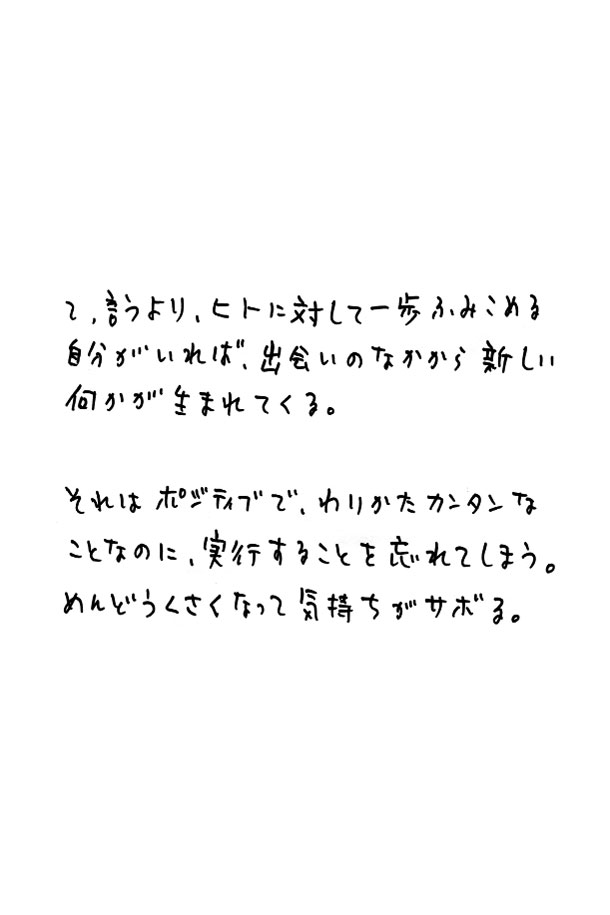 て、言うより、ヒトに対して一歩ふみこめる
自分がいれば、出会いのなかから新しい
何かが生まれてくる。
それはポジティブで、わりかたカンタンな
ことなのに、実行することを忘れてしまう。
めんどうくさくなって気持ちがサボる。